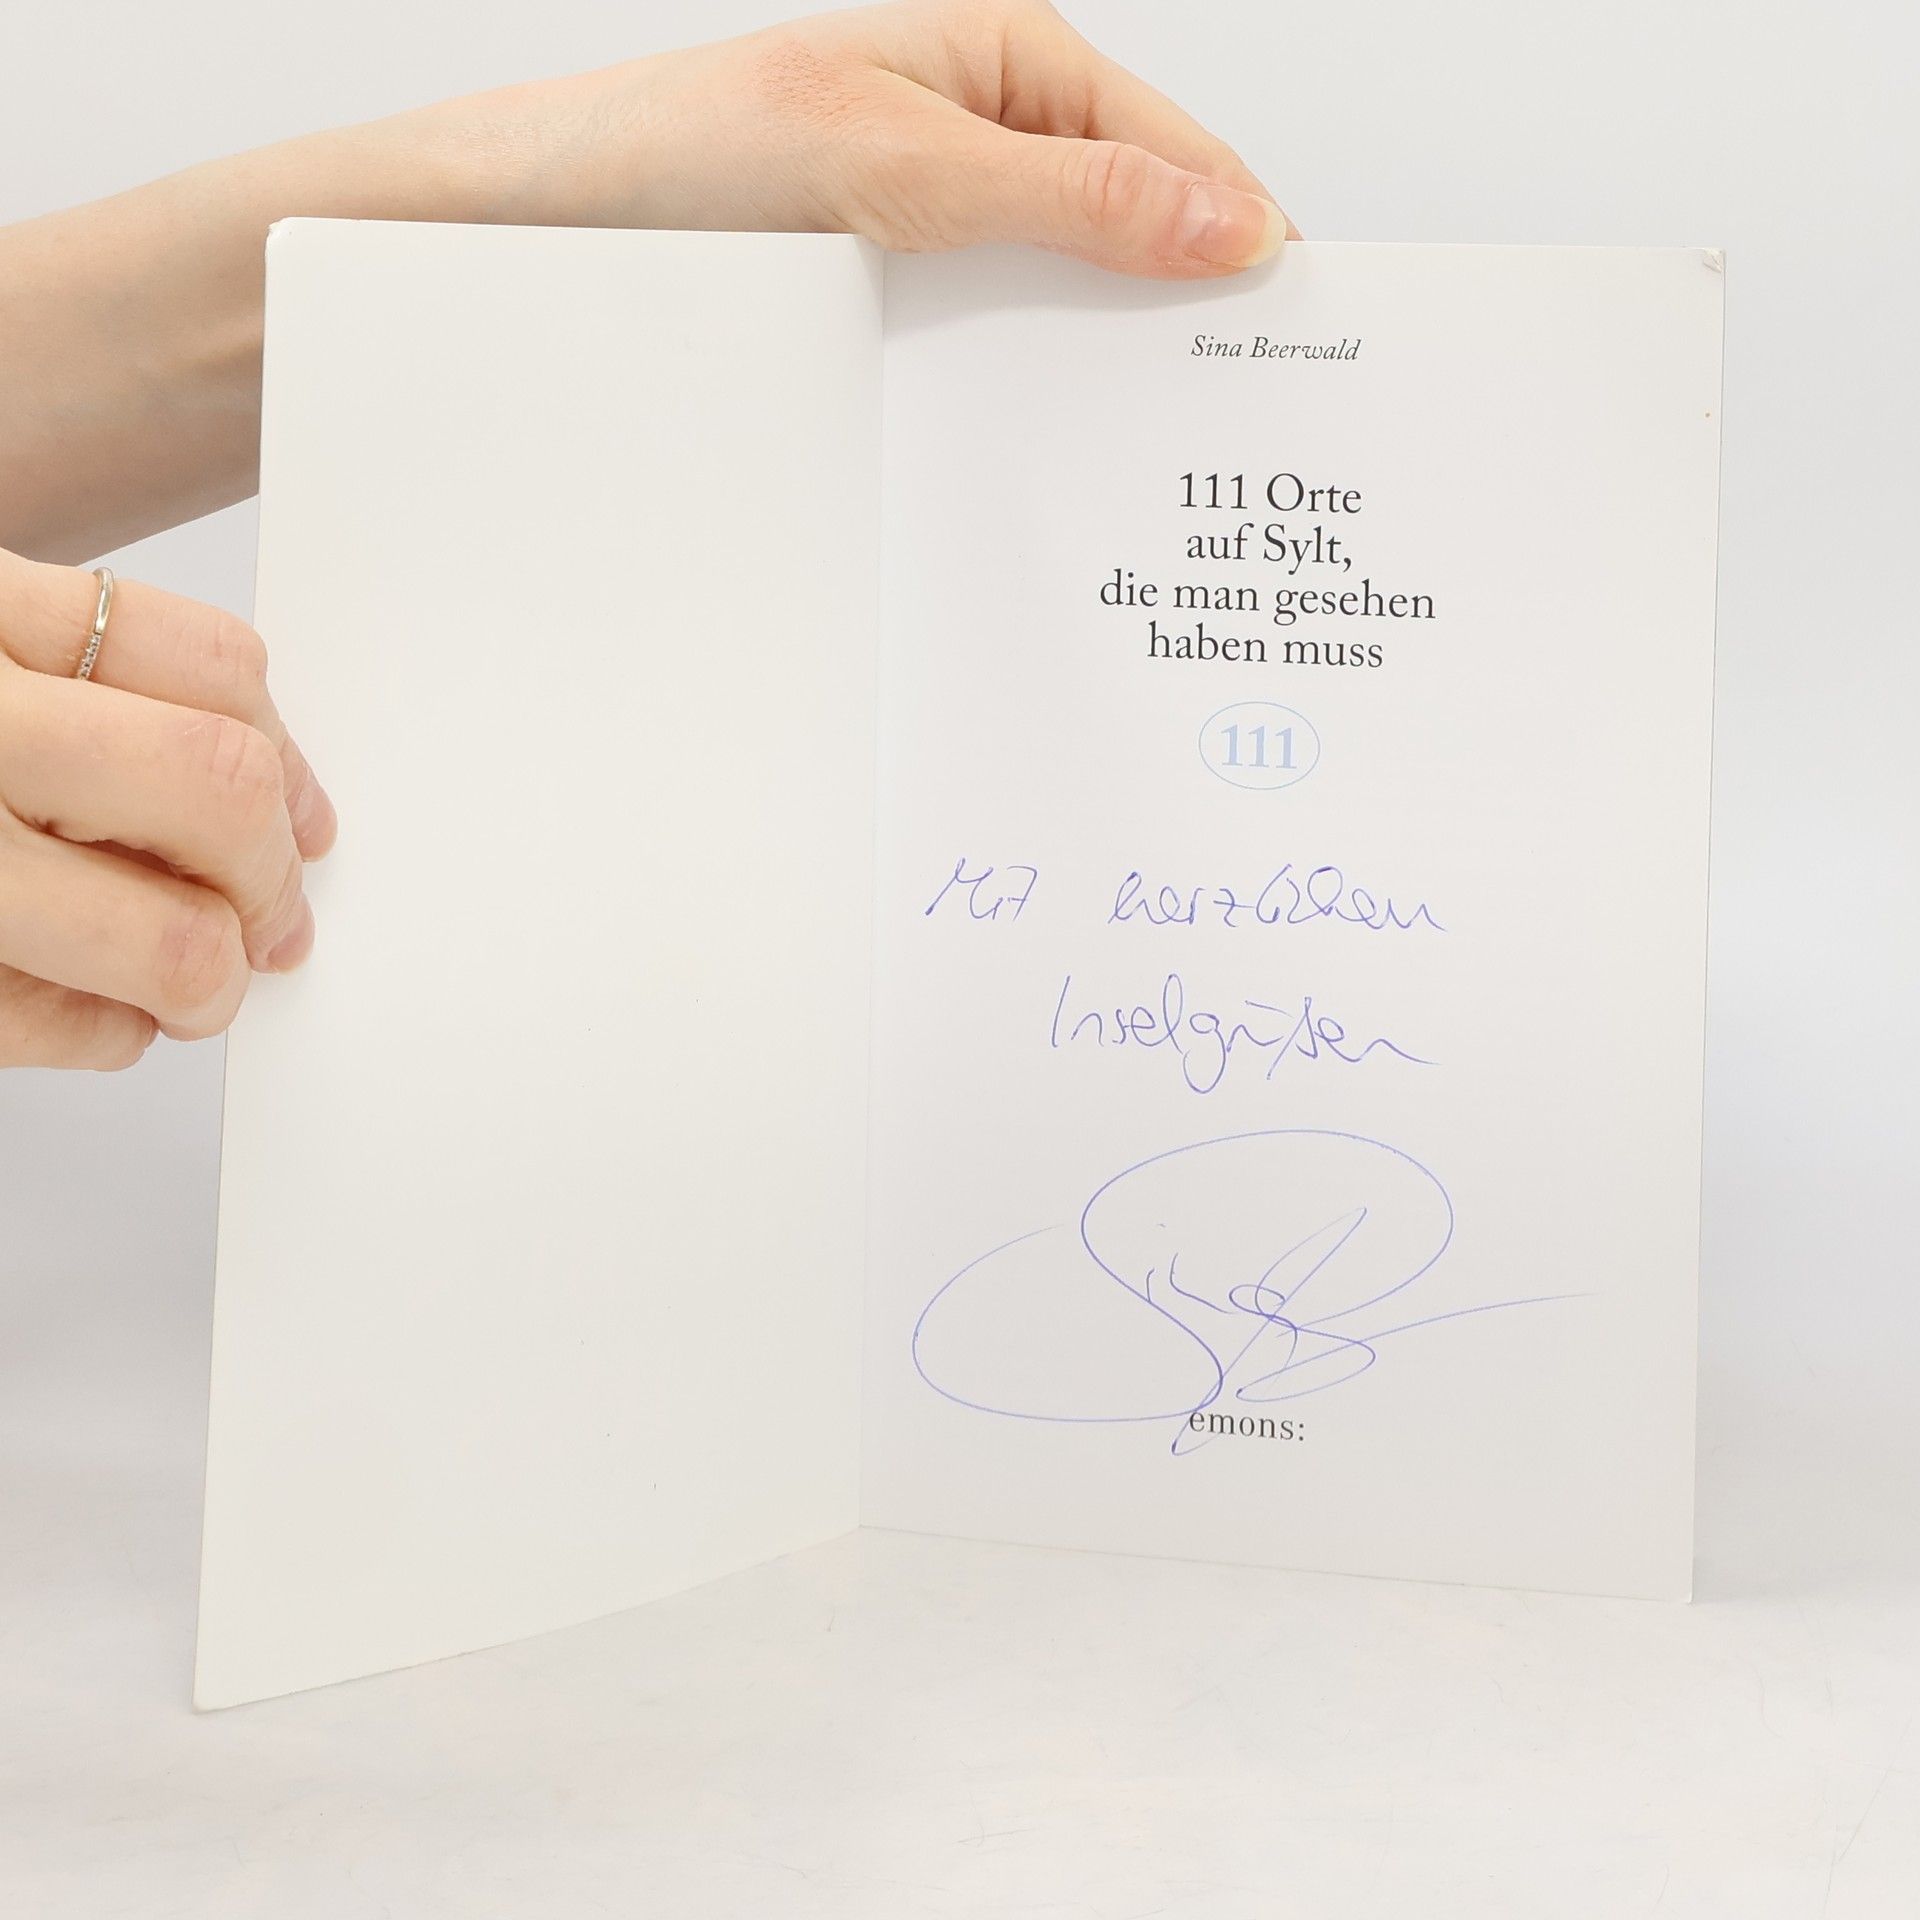 Sina Beerwald
111 Orte
auf Sylt,
die man gesehen
haben muss
111
Mit herzlichen
Inselgrüßen
Sina B
emons: